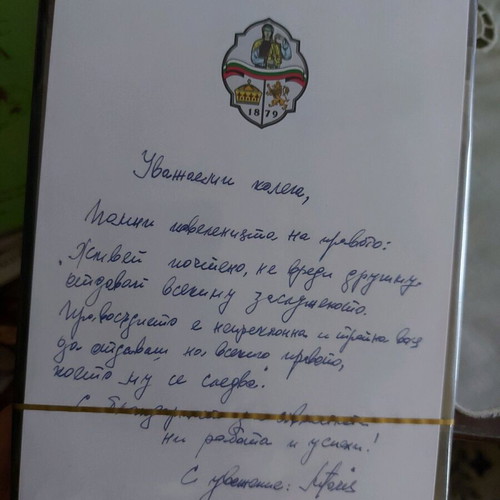 1879
Уважаеми колега,
Помни повеленията на правото:
"Живей почтено, не вреди другиму,
отдавай всекиму заслуженото.
Правосъдието е непреклонна и трайна воля
да отдаваш на всекиго правото,
което му се следва".
С
ни работа и успехи!
С уважение: